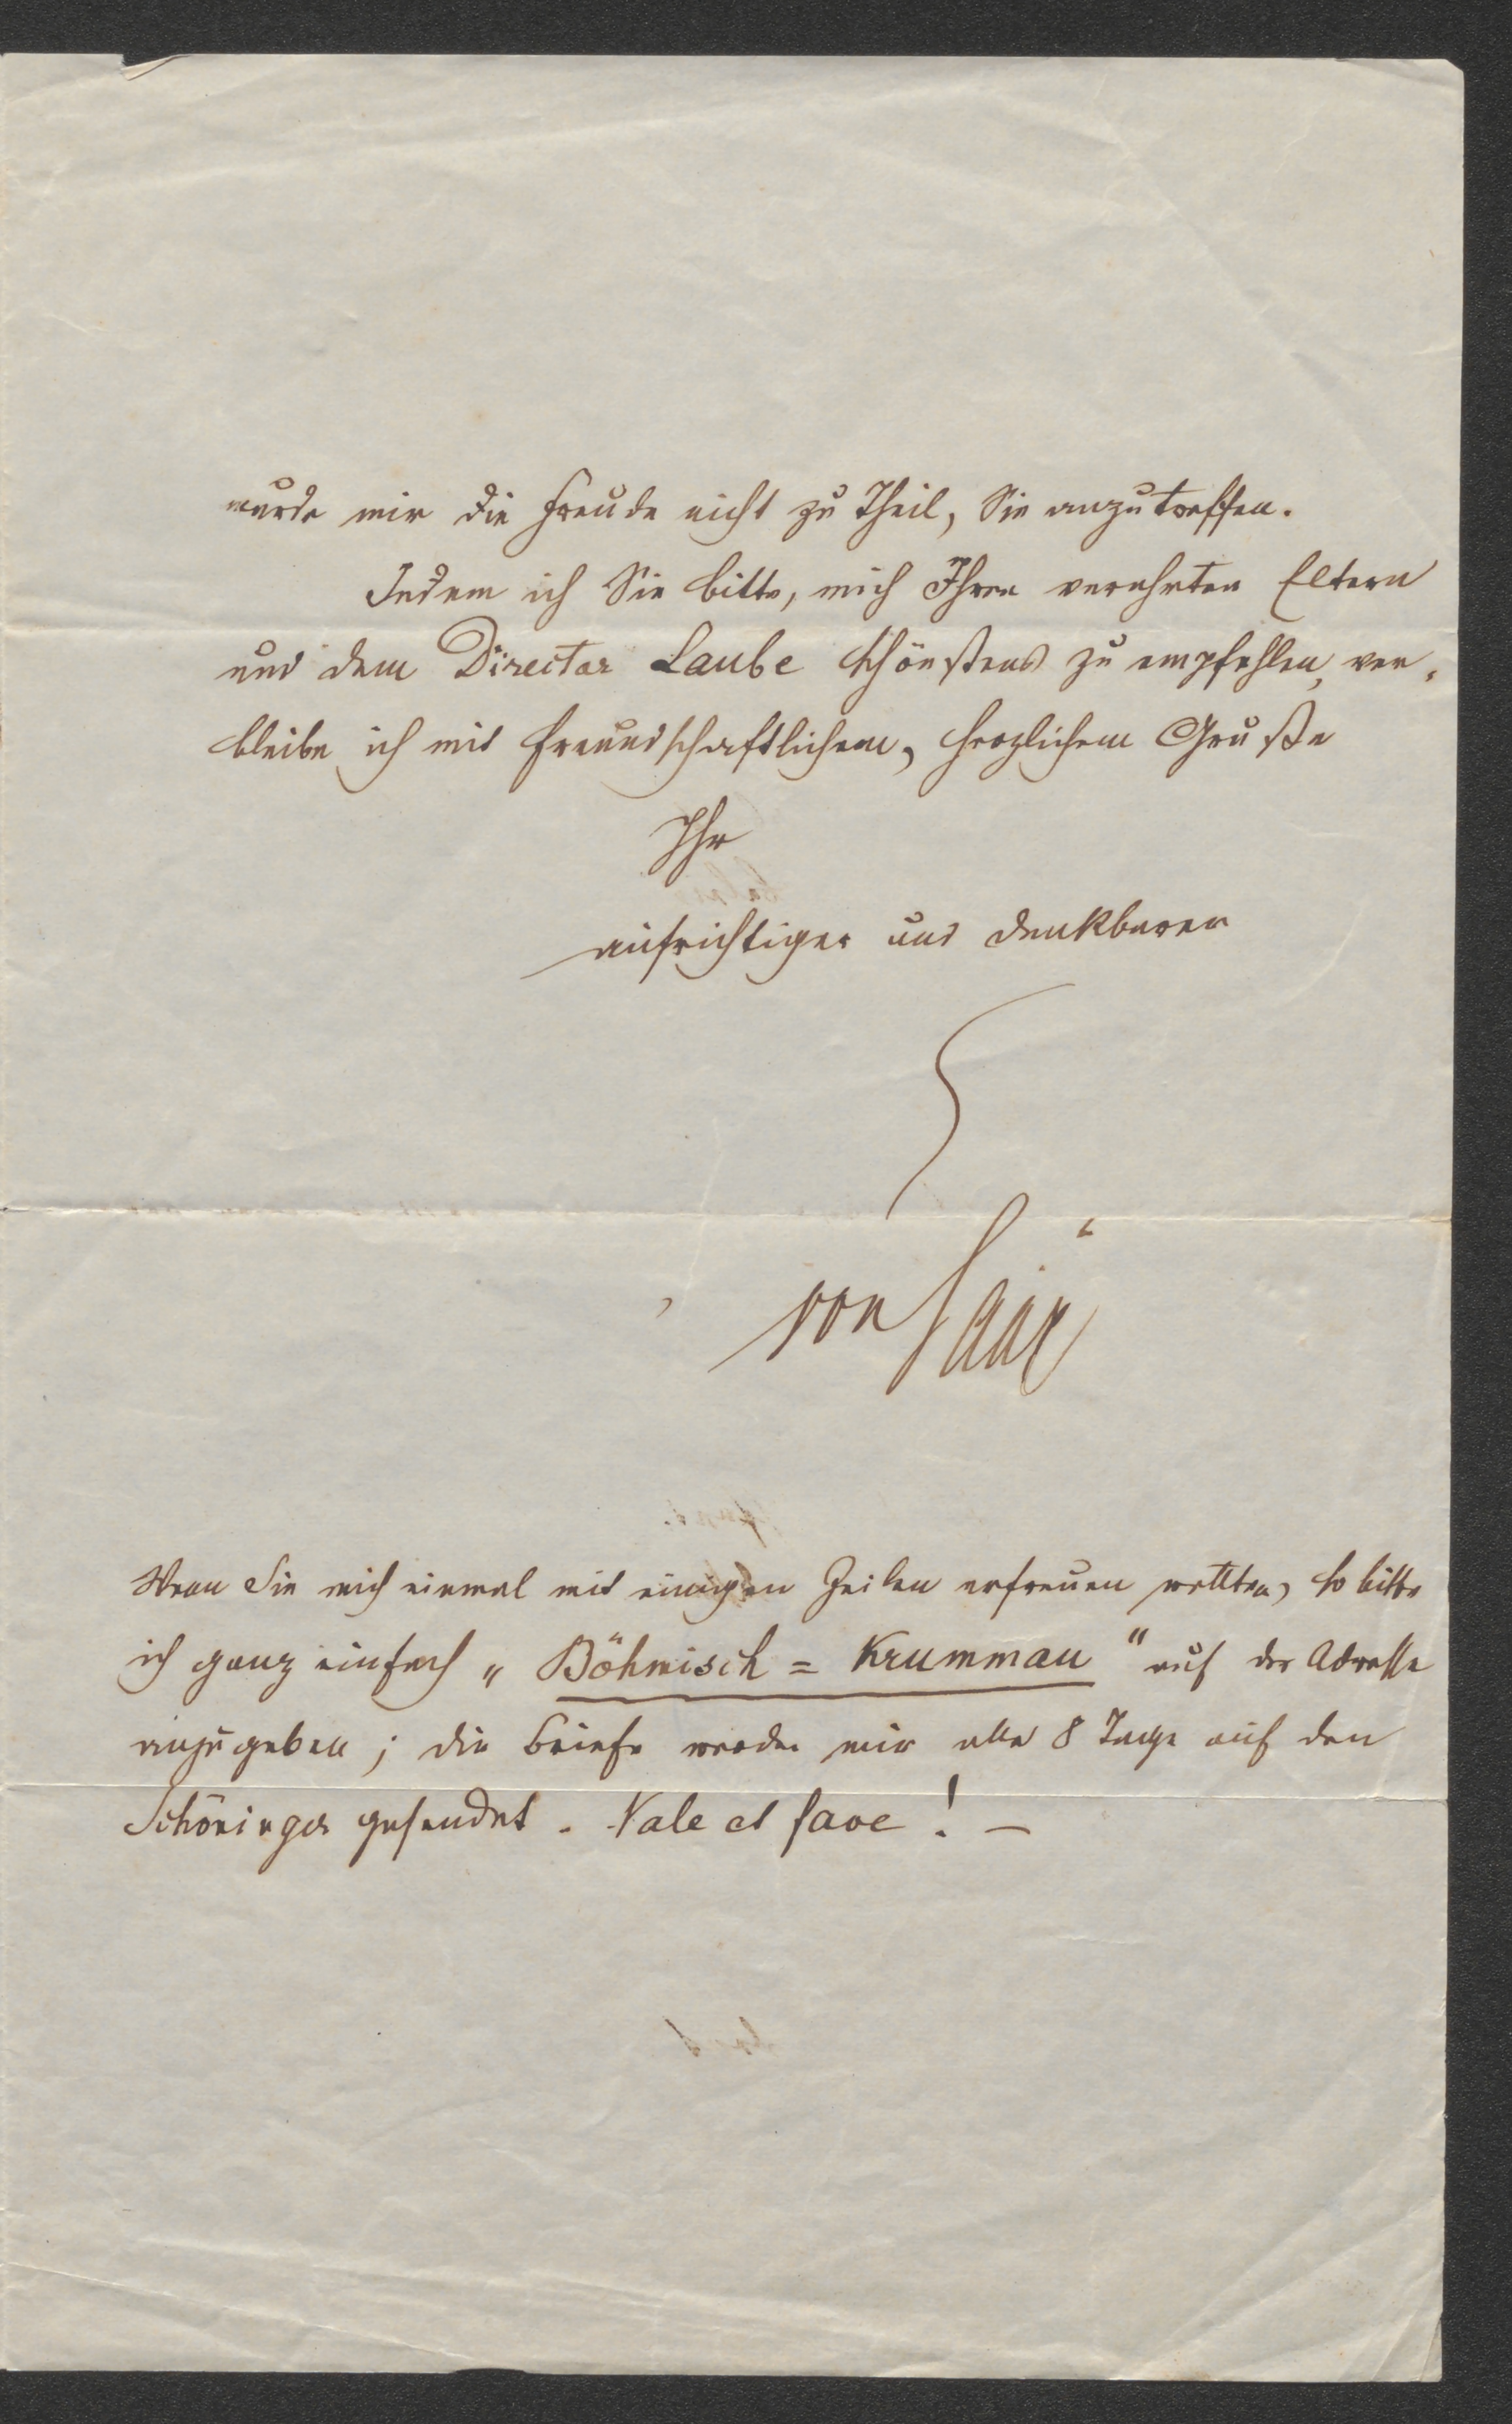 wurde mir die Freude nicht zu Theil, Sie anzutreffen.
Indem ich Sie bitte, mich Ihren verehrten Eltern
und dem Director Laube schönstens zu empfehlen, ver-
bleibe ich mit freundschaftlichem, herzlichem Gruße
Ihr
aufrichtiger und dankbarer
von Saar
Wenn Sie mich einmal mit einigen Zeilen erfreuen wollten, so bitte
ich ganz einfach „Böhmisch=Krummau" auf der Adresse
anzugeben; die Briefe werden mir alle 8 Tage auf den
Schöninger gesendet. Vale et fave! –